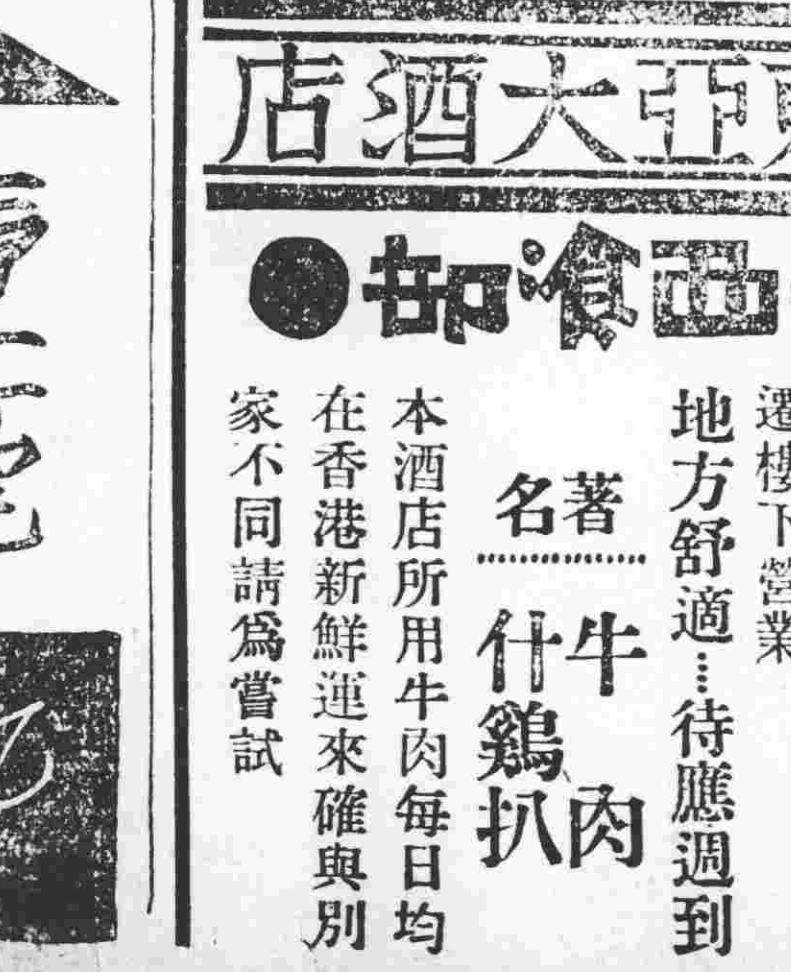 亞大酒店
西飡部●
遷樓下營業
地方舒適⋯⋯待應週到
著名
牛肉
什鷄扒
本酒店所用牛肉每日均
在香港新鮮運來確與別
家不同請爲嘗試